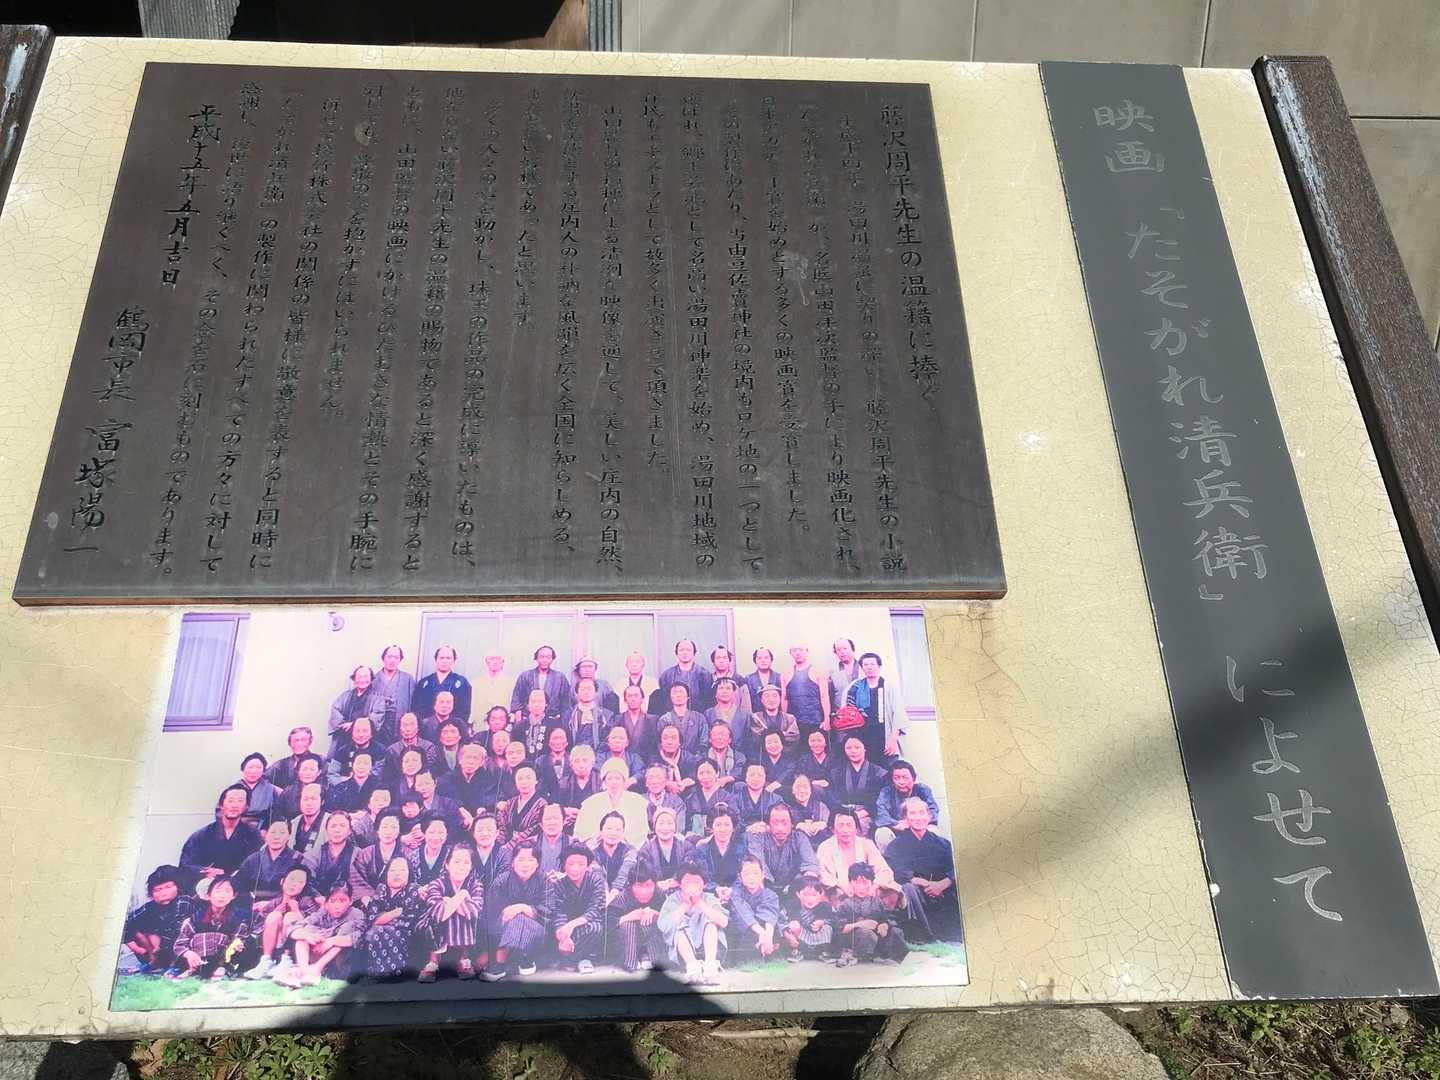 映画「たそがれ清兵衛」によせて
藤沢周平先生の温籍に捧ぐ
平成十四年、湯田川温泉に契りの深い、藤沢周平先生の小説
「たそがれ清兵衛」が、名匠山田洋次監督の手により映画化され、
日本アカデミー賞を始めとする多くの映画賞を受賞しました。
この製作にあたり、当由豆佐賣神社の境内もロケ地の一つとして
選ばれ、郷土芸能として名高い湯田川神楽を始め、湯田川地域の
住民もエキストラとして数多く出演させて頂きました。
山田監督の指揮による清冽な映像を通して、美しい庄内の自然、
を広く全国に知らしめる、
であったと思います。
多くの人々の心を動かし、珠玉の作品の完成に導いたものは、
他ならない藤沢周平先生の温籍の賜物であると深く感謝すると
ともに、山田監督の映画にかけるひたむきな情熱とその手腕に
対しても、尊敬の念を抱かずにはいられません。
株式会社の関係の皆様に敬意を表すると同時に
「たそがれ清兵衛」の製作に関わられたすべての方々に対して
感謝し、後世に語り継ぐべく、その念を石に刻むものであります。
平成十五年五月吉日
鶴岡市長 富塚陽一